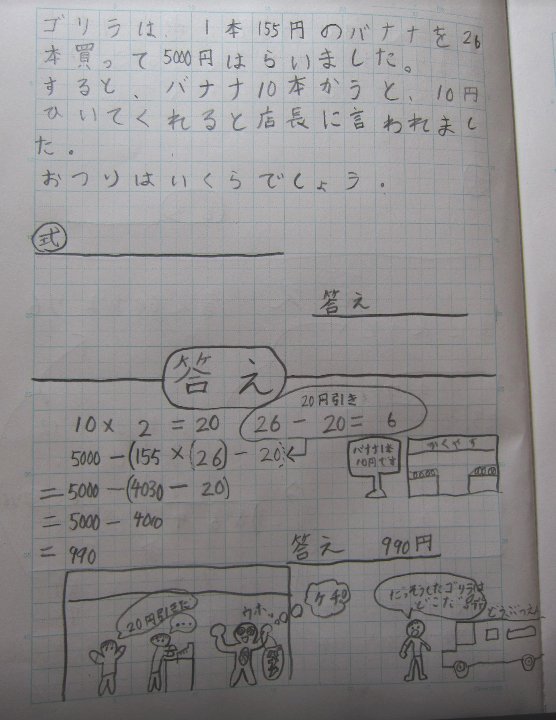 ゴリラは、1本155円のバナナを26
本買って5000円はらいました。
すると、バナナ10本かうと、10円
ひいてくれると店長に言われまし
た。
おつりはいくらでしょう。
式
答え
答え
20円引き
10×2=20 26-20=6
5000-(155×(26)-20)
=5000-(4030-20)
=5000-4010
=990
バナナ1本
10円です
かくやす
答え 990円
20円引きだ
...
ウホ
ケチ
だっそうしたゴリラは
どこだ
どうぶつえん